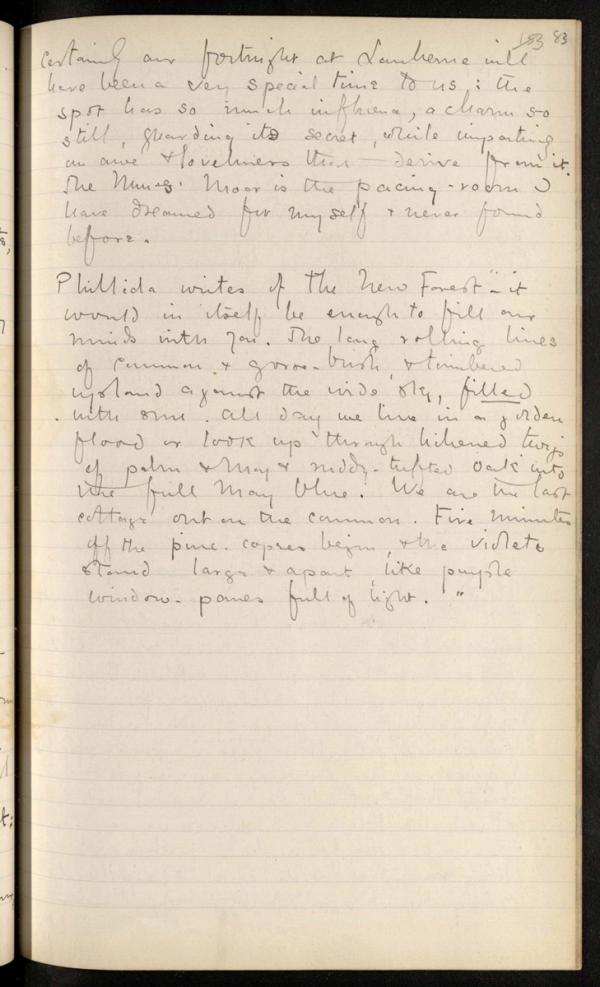 183 83
certainly our fortnight at Lanherne will
have been a very special time to us : the
spot has so much influence, a charm so
still, guarding its secret, while imparting
an awe & loveliness that derive from it.
The Nuns' Moor is the pacing-room I
have dreamed for myself & never found
before.
Phillida writes of the New Forest "– it
would in itself be enough to fill our
minds with joy. The long rolling lines
of common & gorse-bush & timbered
upland against the wide sky, filled
with sun. All day we live in a golden
flood or look up through lichened twigs
of palm & may & ruddy-tufted oak into
the full May blue. We are the last
cottage out on the common. Five minutes
off the pine-copses begin, & the violets
stand large & apart, like purple
window-panes full of light. "